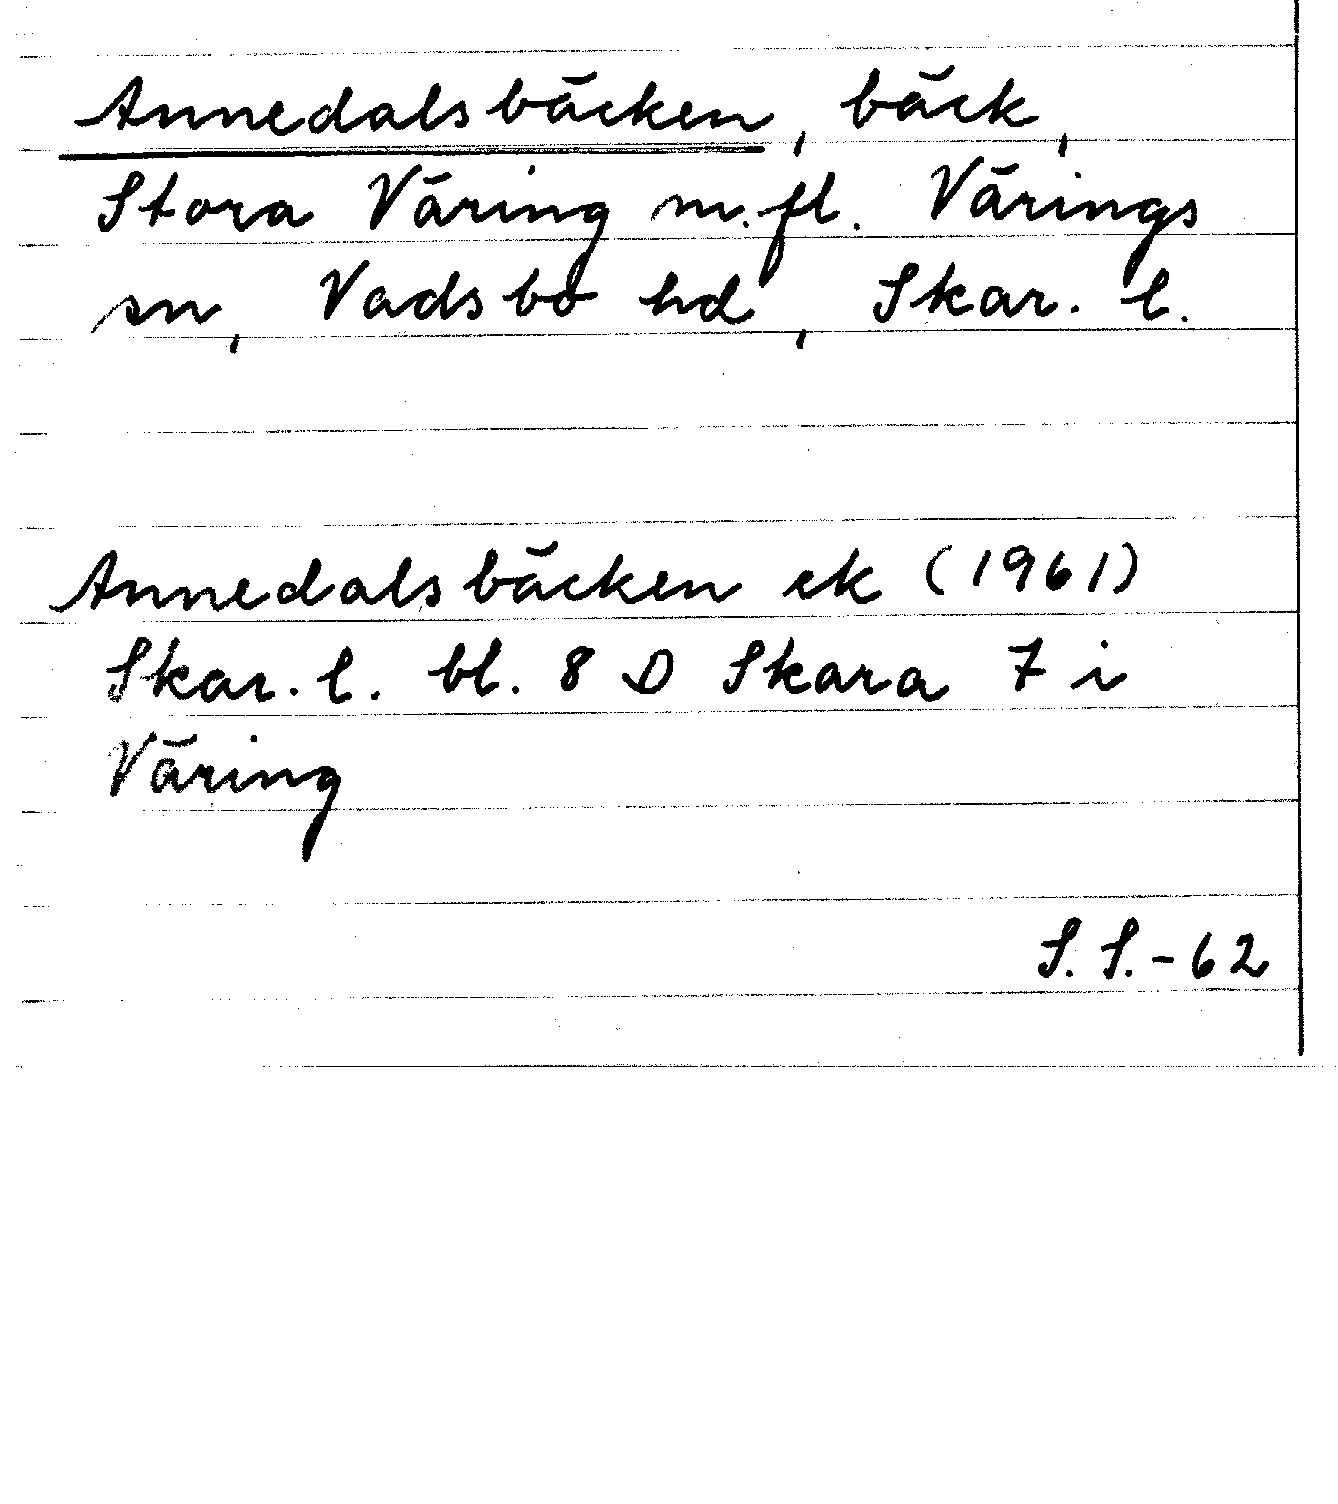 Annedalsbäcken, bäck,
Stora Väring m.fl. Värings
sn, Vadsbo hd, Skar. l.
Annedalsbäcken ek (1961)
Skar. l. bl. 8 D Skara 7 i
Väring
S. S. - 62